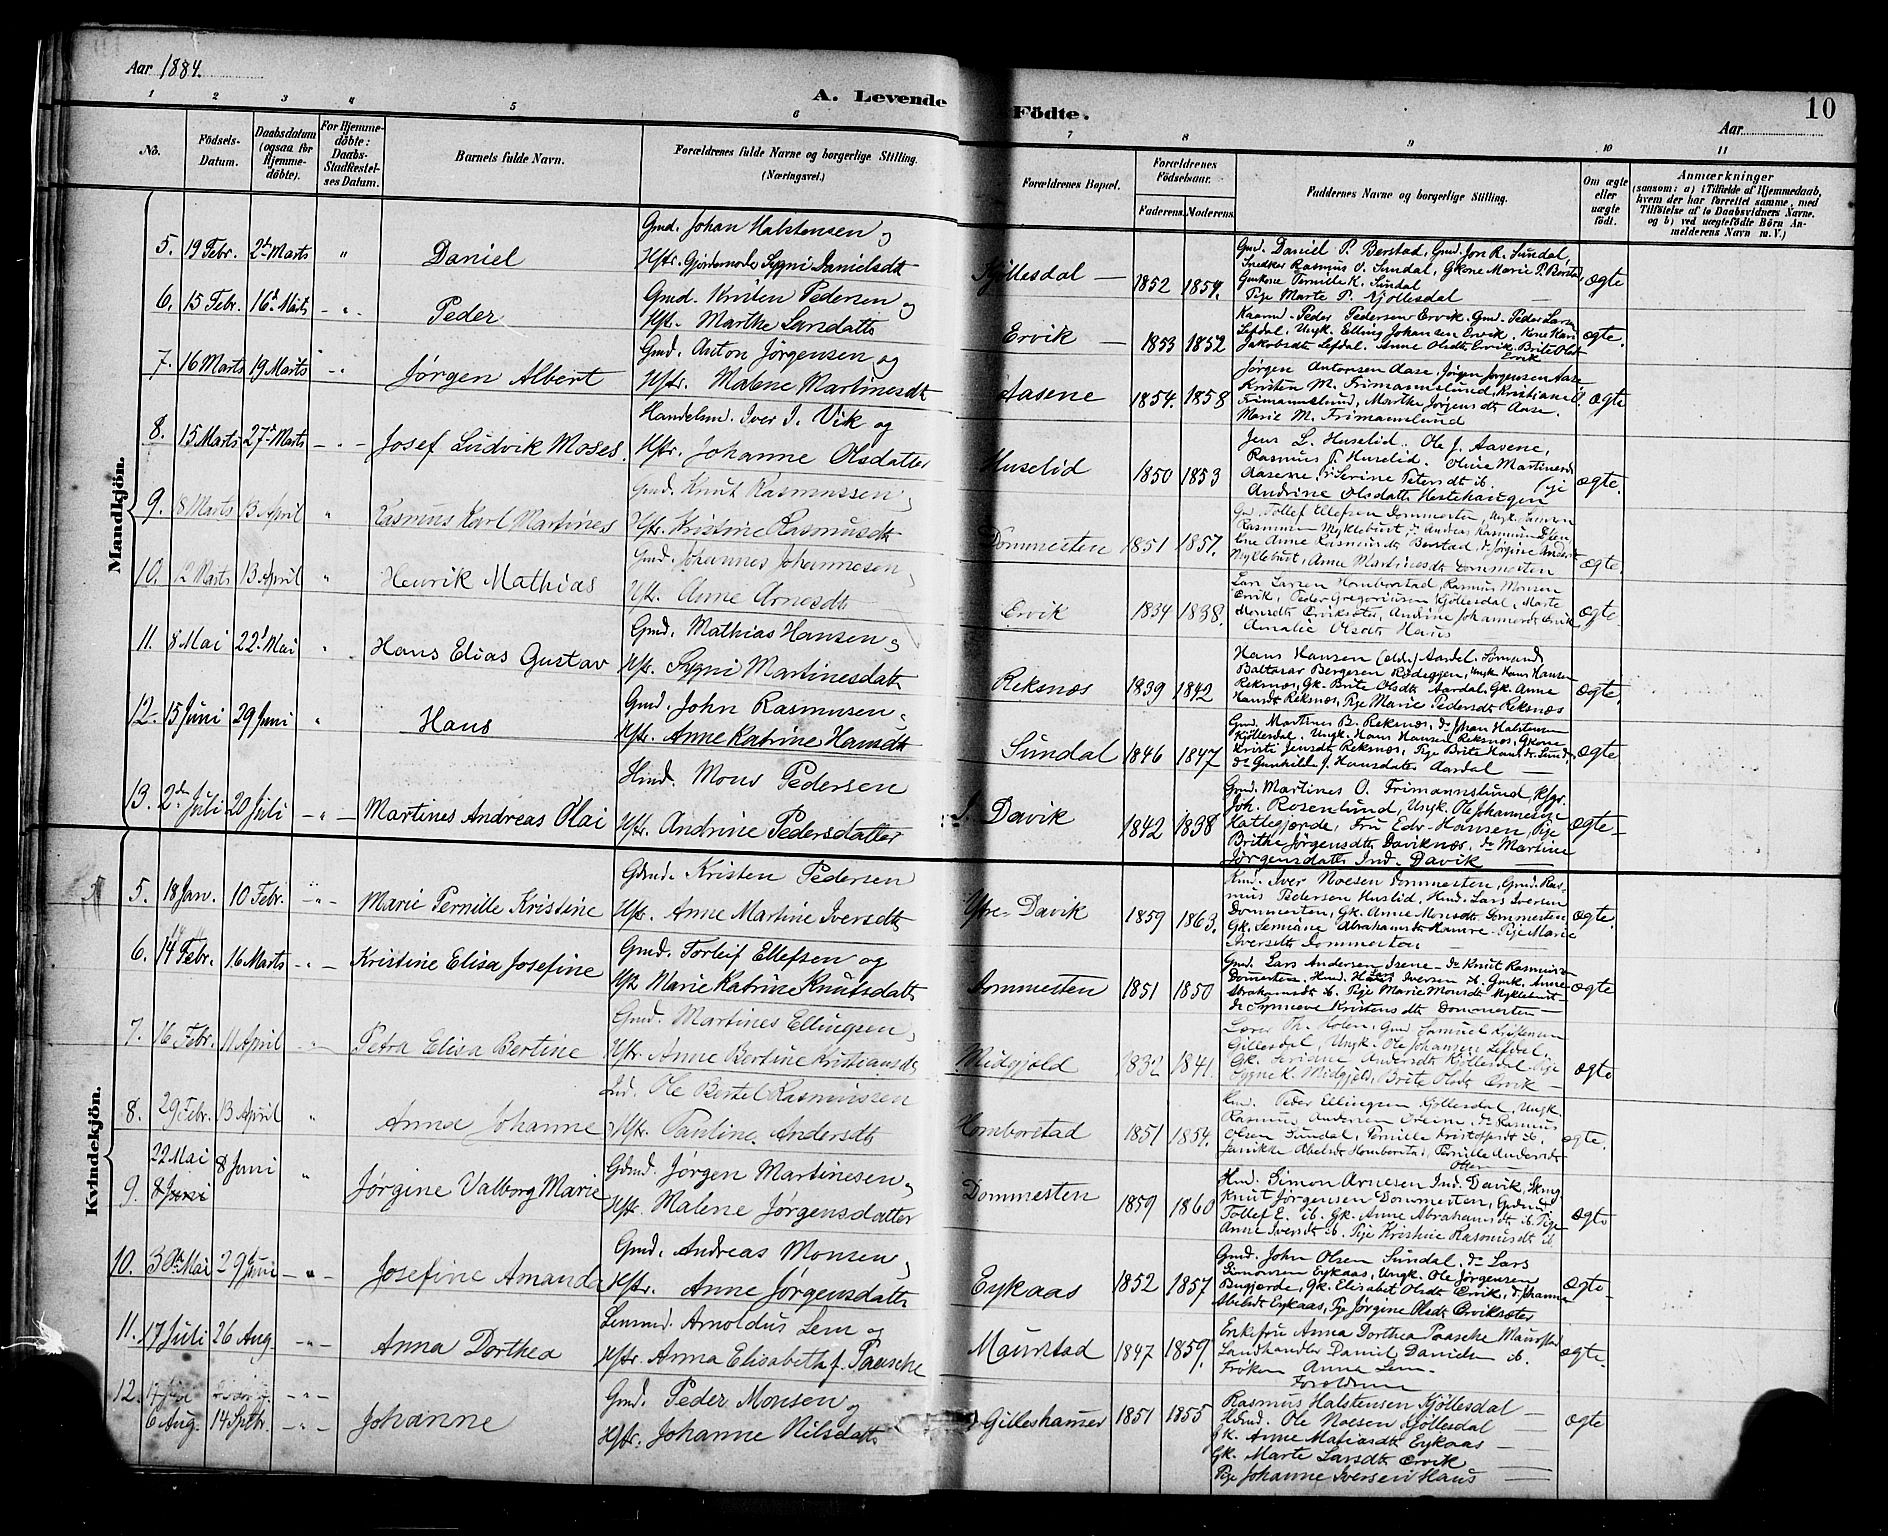 Aar 1884.
A. Levende Födte.
10
Aar
1 2 3 4 5 6 7 8 9 10 11
No.
Födsels-Datum.
Daabsdatum (ogsaa for Hjemme-döbte).
For Hjemme-döbte: Daabs-Stadfæstel-ses Datum.
Barnets fulde Navn.
Forældrenes fulde Navne og borgerlige Stilling.
(Næringsvei.)
Forældrenes Bopæl.
Forældrenes Födselsaar.
Faderens. Moderens.
Faddernes Navne og borgerlige Stilling.
Om ægte eller uægte födt.
Anmærkninger
(saasom: a) i Tilfælde af Hjemmedaab, hvem der har forrettet samme, med Tilföielse af to Daabsvidners Navne, og b) ved uægtefödte Börn An-melderens Navn m. V.)
Mandkjön.
5. 19 Febr. 2den Marts " Daniel
Gmd. Johan Halstensen og
Hstr. Gjordemoder Sygni Danielsdt
Kjöllesdal — 1852 1854.
Gmd. Daniel P. Berstad, Gmd. Jon R. Sundal,
Snedker Rasmus O. Sundal, Gkone Marie P. Berstad
Gmkone Pernille K. Sundal
Pige Marte P. Kjöllesdal
ægte
6. 15 Febr. 16d Marts - " - Peder
Gmd. Kristen Pedersen og
Hstr. Marthe Larsdattr
Ervik — 1853 1852
Kaarmd. Peder Pedersen Ervik, Gmd. Peder Larsen
Lefdal, Ungk. Elling Johansen Ervik, Kone Kari
Jakobsdt Lefdal, Anne Olsdt Ervik, Brite Olsdt
Ervik
ægte.
7. 16 Marts 19 Marts - " Jørgen Albert
Gmd. Anton Jørgensen og
Hstr. Malene Martinesdt
Aasene 1854. 1858
Jørgen Antonsen Aase, Jørgen Jørgensen Aase
Kristen M. Frimannslund, Kristiane O.
Frimannslund, Marthe Jørgensdt Aase.
Marie M. Frimannslund
ægte
8. 15 Marts 27de Marts - " - Josef Ludvik Moses.
Handelsm. Iver I. Vik og
Hstr. Johanne Olsdatter
Huselid 1850 1853
Jens L. Huselid. Ole J. Aasene,
Rasmus P. Huselid. Oline Martinesd
Aasene, Pi Serine Petersdt ib.
Andrine Olsdattr Hestehaugen
ægte.
9. 8 Marts 13 April " Rasmus Karl Martines
Gmd. Knut Rasmussen,
Hstr. Kristine Rasmusdt
Dommesten 1851 1857.
Gmd. Tollef Ellefsen Dommesten, Ungk. Samson
Rasmussen Myklebust, do Andreas Rasmussen
Anne Rasmusdt Berstad, do Jørgine Andersdt
Myklebust, Anne Martinesdt Dommesten
ægte.
10. 12 Marts 13 April " Henrik Mathias
Gmd. Johannes Johannesen,
Hst. Anne Arnesdt
Ervik 1834 1838.
Lars Larsen Homborstad, Rasmus Monsen
Ervik, Peder Gregoriusen Kjöllesdal, Marte
Monsdt Erviksæter, Andrine Johannesdt Ervik
Amalie Olsdt Haus
ægte.
11. 8 Mai 22d Mai " . Hans Elias Gustav
Gmd. Mathias Hansen og
Hstr. Sygni Martinesdattr
Reksnæs 1839 1842
Hans Hansen (eldr.) Aardal, Sömand
Baltasar Bergesen Rödeggen, Ungk Hans Hansen
Reksnæs, Gk. Brite Olsdt Aardal, Gk. Anne
Hansdt Reksnæs, Pige Marie Pedersdt Reksnæs
ægte.
12. 15 Juni 29 Juni " Hans
Gmd. John Rasmusen og
Hstr. Anne Katrine Hansdtr
Sundal 1846 1847
Gmd. Martines B. Reksnæs, do Johan Halstensen
Kjöllesdal, Ungk. Hans Hansen Reksnæs, Gkone
Kristi Jensdt Reksnæs, Pige Brite Hansdt. Sundal
do Gunhild J. Hansdattr Aardal
ægte
13. 2den Juli 20 Juli - " - Martines Andreas Olai
Hmd. Mons Pedersen
Hstr. Andrine Pedersdatter
I. Davik 1842 1838
Gmd. Martines O. Frimannslund, Kfgr.
Joh. Rosenlund, Ungk. Ole Johannesen
Hattegjerde, Fru Edv. Hansen, Pige
Brithe Jørgensdt Daviknæs, do Martine
Jørgensdattr Ind. Davik
ægte -
Kvindekjön.
5. 18 Jan. 10 Febr. - " - Marie Pernille Kristine
Gdmd. Kristen Pedersen
Hstr. Anne Martine Iversdtr
Ytre-Davik 1859 1863.
Kmd. Iver Noesen Dommesten, Gmd. Ras-
mus Pedersen Huslid, Hmd. Lars Iversen
Dommesten, Gk. Anne Monsdt Dommesten
Gk. Semiane Abrahamsdt Hamre. Pige Marie
Iversdt Dommesten
ægte.
6. 14 Febr. 16 Marts - " - Kristine Elisa Josefine
Gmd. Torleif Ellefsen og
Hstr Marie Katrine Knutsdattr
Dommesten 1851 1850
Gmd. Lars Andersen Isene - do Knut Rasmussen
Domesten. Hmd. Lars Iversen ib. Gmk. Anne
Abrahamsdt ib. Pige Marie Monsdt Myklebust
do Synneve Kristensdt Dommesten -
ægte
7. 16 Febr. 11 April " Petra Elisa Bertine
Gmd. Martines Ellingsen,
Hstr. Anne Bertine Kristiansdt
Midgjeld 1832 1841.
Lærer Th. Holen, Gmd Samuel Kristensen
Gillesdal, Ungk. Ole Johansen Lefdal,
Gk. Seriane Andersdt Kjöllesdal, Pige
Sygne K. Midgjeld, Brite Olsdt Ervik -
ægte
8. 29 Febr. 13 April " Anna Johanne
Ind. Ole Bertel Rasmussen
Hstr. Pauline Andersdt
Homborstad 1851 1854.
Kmd. Peder Ellingsen Kjöllesdal, Ungk.
Rasmus Andersen Dreine, do Rasmus
Olsen Sundal, Pernille Kristoffersdt ib.
Janikke Abelsdt Homborstad, Pernille Andersdt
ægte.
9. 22 Mai 8 Juni 8 Juni " Jørgine Valborg Marie
Gdmd. Jørgen Martinesen og
Hstr. Malene Jørgensdatter
Dommesten 1859 1860
Hmd. Simon Arnesen Ind. Davik, Ungk.
Knut Jørgensen Dommesten, Gdmd
Tollef E. ib. Gk. Anne Abrahamsdt ib. Pige
Anne Iversdt ib. Pige Kristine Rasmusdt ib
ægte
10. 30te Mai 29 Juni - " - Josefine Amanda
Gmd. Andreas Monsen og
Hstr. Anne Jørgensdattr
Eykaas 1852 1857
Gmd. John Olsen Sundal, do Lars
Simonsen Eykaas, Ungk. Ole Jørgensen
Bugjerde, Gk. Elisabet Olsdt Ervik, do Johanne
Abelsdt Eykaas, Pige Jørgine Olsdt Erviksæter
ægte -
11. 17 Juli 26 Aug. - " - Anna Dorthea
Lensmd. Arnoldus Lem og
Hstr. Anna Elisabeth f. Paasche
Maurstad 1847 1859.
Enkefru Anna Dorthea Paasche Maurstad
Landhandler Daniel Danielsen ib.
Frøken Anna Lem
Forældrene
ægte.
12. 6 Aug. 14 Septbr. - " - Johanne
Gmd. Peder Monsen og
Hstr. Johanne Nilsdattr
Gilleshauser 1851 1855
Rasmus Halstensen Kjöllesdal -
Hdmd. Ole Noesen Kjöllesdal -
Gk. Anne Matiasdt Eykaas -
Gk. Marte Larsdt Ervik -
Pige Johanne Iversen Haus -
ægte